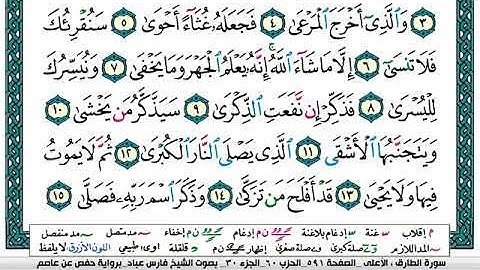 ٣ وَالَّذِىٓ أَخْرَجَ الْمَرْعَىٰ ٤ فَجَعَلَهُۥ غُثَآءً أَحْوَىٰ ٥ سَنُقْرِئُكَ
فَلَا تَنسَىٰٓ ٦ إِلَّا مَا شَآءَ اللَّهُ ۚ إِنَّهُۥ يَعْلَمُ الْجَهْرَ وَمَا يَخْفَىٰ ٧ وَنُيَسِّرُكَ
لِلْيُسْرَىٰ ٨ فَذَكِّرْ إِن نَّفَعَتِ الذِّكْرَىٰ ٩ سَيَذَّكَّرُ مَن يَخْشَىٰ ١٠
وَيَتَجَنَّبُهَا الْأَشْقَى ١١ الَّذِى يَصْلَى النَّارَ الْكُبْرَىٰ ١٢ ثُمَّ لَا يَمُوتُ
فِيهَا وَلَا يَحْيَىٰ ١٣ قَدْ أَفْلَحَ مَن تَزَكَّىٰ ١٤ وَذَكَرَ اسْمَ رَبِّهِۦ فَصَلَّىٰ ١٥
م إقلاب غنة إدغام بلاغنة ن م إدغام ن م إخفاء مد متصل مد منفصل
المد اللازم صلة كبرى وصلة صغرى إظهار ن م قلقلة اوى طبيعي اللون الأزرق لا يلفظ
سورة الطارق ,الأعلى _الصفحة ٥٩١_الحزب ٦٠_الجزء ٣٠_ بصوت الشيخ فارس عباد_برواية حفص عن عاصم